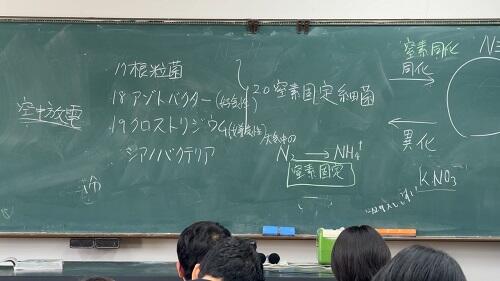 空中放電
17根粒菌
18アゾトバクター(好気性)
19クロストリジウム(嫌気性)
シアノバクテリア
20窒素固定細菌
大気中の
N₂ → NH₄⁺
窒素固定
窒素同化
同化
異化
KNO₃
N